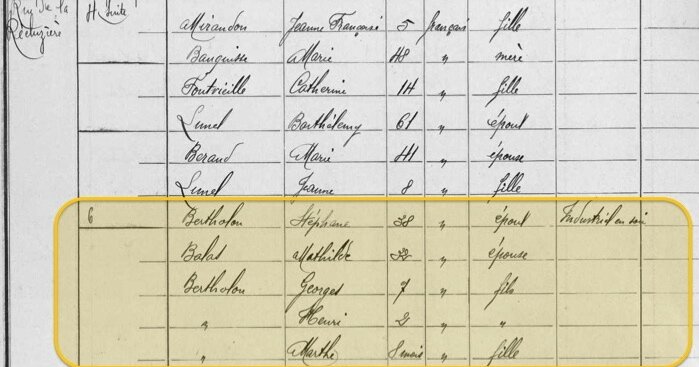 Rue de la 4 Suite Mirandon Jeanne Française 5 français fille
Bauquisse Marie 48 " mère
Fontvieille Catherine 14 " fille
Lunel Barthélemy 61 " épout
Béraud Marie 41 " épouse
Lunel Jeanne 8 " fille
6 Bertholon Stéphane 38 " épout Industriel en soie
Balas Mathilde 32 " épouse
Bertholon Georges 7 " fils
" Henri 2 " "
" Marthe 8 mois " fille